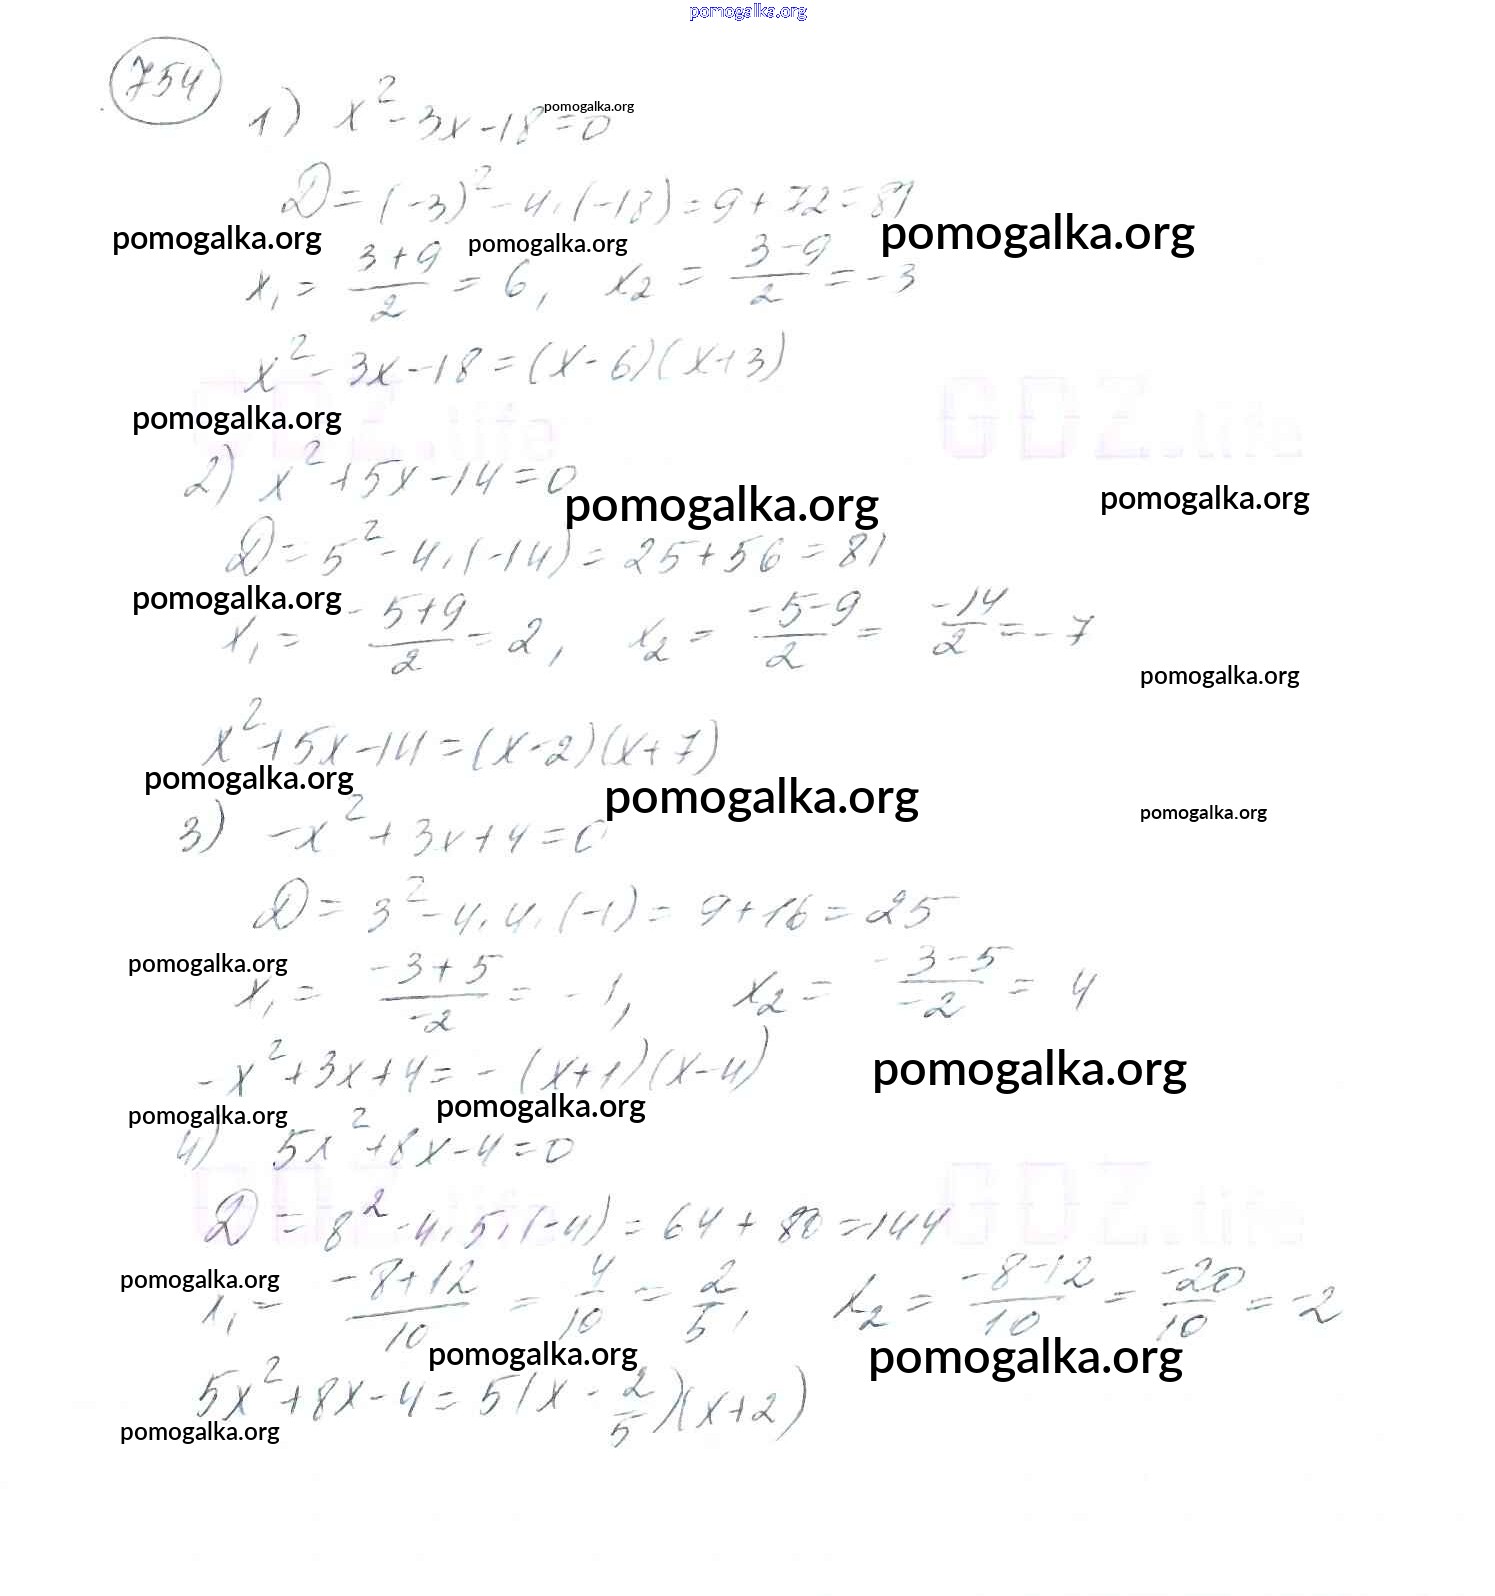 pomogalka.org
754
1) x² - 3x - 18 = 0
pomogalka.org
D = (-3)² - 4·(-18) = 9 + 72 = 81
pomogalka.org pomogalka.org pomogalka.org
x₁ = (3+9)/2 = 6, x₂ = (3-9)/2 = -3
x² - 3x - 18 = (x - 6)(x + 3)
GDZ.life GDZ.life
pomogalka.org
2) x² + 5x - 14 = 0
pomogalka.org pomogalka.org
D = 5² - 4·(-14) = 25 + 56 = 81
pomogalka.org
x₁ = (-5+9)/2 = 2, x₂ = (-5-9)/2 = -14/2 = -7
pomogalka.org
x² + 5x - 14 = (x - 2)(x + 7)
pomogalka.org pomogalka.org pomogalka.org
3) -x² + 3x + 4 = 0
D = 3² - 4·4·(-1) = 9 + 16 = 25
pomogalka.org
x₁ = (-3+5)/-2 = -1, x₂ = (-3-5)/-2 = 4
-x² + 3x + 4 = -(x+1)(x-4)
pomogalka.org
pomogalka.org pomogalka.org
4) 5x² + 8x - 4 = 0
GDZ.life GDZ.life
D = 8² - 4·5·(-4) = 64 + 80 = 144
pomogalka.org
x₁ = (-8+12)/10 = 4/10 = 2/5, x₂ = (-8-12)/10 = -20/10 = -2
pomogalka.org pomogalka.org
5x² + 8x - 4 = 5(x - 2/5)(x+2)
pomogalka.org